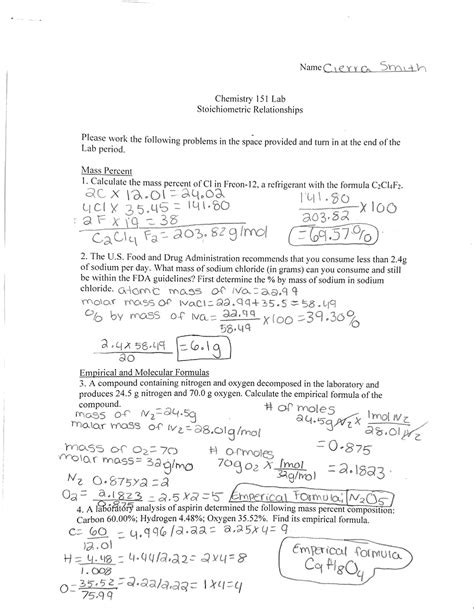 Name Cierra Smith
Chemistry 151 Lab
Stoichiometric Relationships
Please work the following problems in the space provided and turn in at the end of the
Lab period.
Mass Percent
1. Calculate the mass percent of Cl in Freon-12, a refrigerant with the formula C₂Cl₄F₂.
2C x 12.01 = 24.02
4Cl x 35.45 = 141.80
2 F x 19 = 38
C₂Cl₄F₂ = 203.82 g/mol
141.80
203.82 x 100
= 69.57%
2. The U.S. Food and Drug Administration recommends that you consume less than 2.4g
of sodium per day. What mass of sodium chloride (in grams) can you consume and still
be within the FDA guidelines? First determine the % by mass of sodium in sodium
chloride. atomic mass of Na = 22.99
molar mass of NaCl = 22.99 + 35.5 = 58.49
% by mass of Na = 22.99
58.49 x 100 = 39.30%
2.4 x 58.49
20
= 6.1g
Empirical and Molecular Formulas
3. A compound containing nitrogen and oxygen decomposed in the laboratory and
produces 24.5 g nitrogen and 70.0 g oxygen. Calculate the empirical formula of the
compound.
mass of N₂ = 24.5g
malar mass of N₂ = 28.01g/mol
# of moles
24.5g N₂ x 1mol N₂
28.01g N₂
= 0.875
mass of O₂ = 70
molar mass = 32g/mol
# of moles
70g O₂ x 1mol
32g/mol
= 2.1823
N₂ 0.875x2 = 2
O₂ = 2.1823
0.875
= 2.5 x 2 = 5
Emperical Formula: N₂O₅
4. A laboratory analysis of aspirin determined the following mass percent composition:
Carbon 60.00%; Hydrogen 4.48%; Oxygen 35.52%. Find its empirical formula.
C = 60
12.01
= 4.996/2.22 = 2.25x4 = 9
H = 4.48
1.008
= 4.44/2.22 = 2x4 = 8
O = 35.52
75.99
= 2.22/2.22 = 1x4 = 4
Emperical formula
C₉H₈O₄